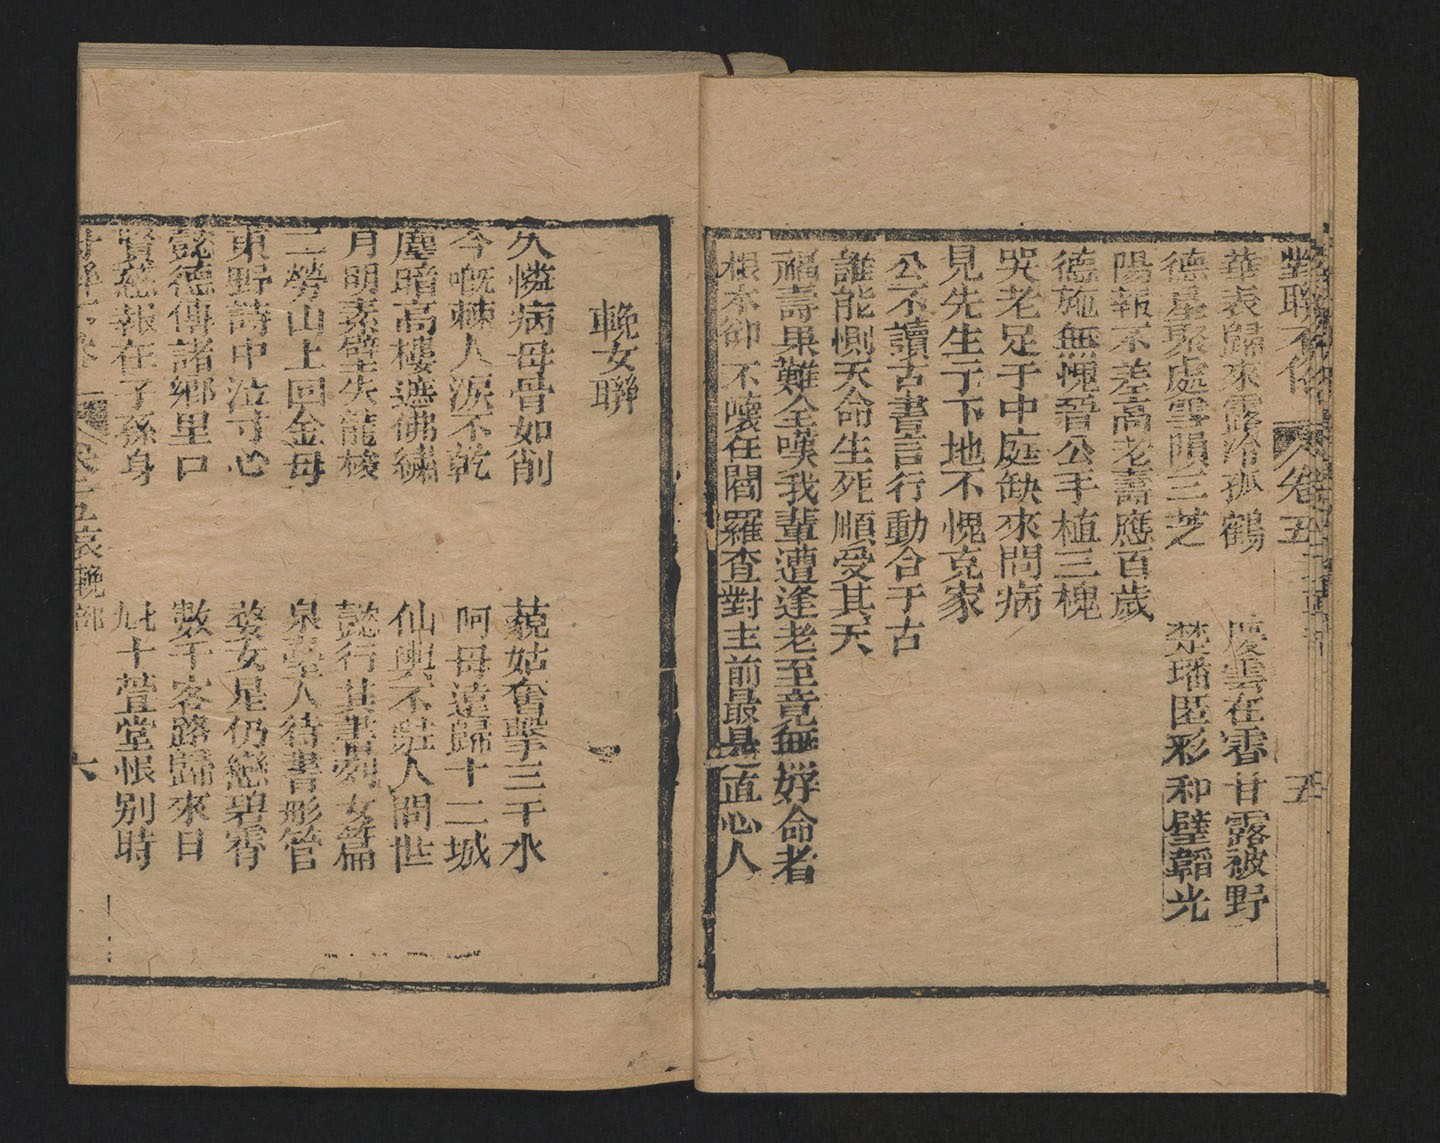 對聯不俗 卷五 五
華表歸來露冷孤鶴 慶雲在霄甘露被野
德星聚處雲隕三芝 楚璠匿彩和璧韜光
陽報不差高老壽應百歲
德施無愧晉公手植三槐
哭老足于中庭缺來問病
見先生于下地不愧克家
公不讀古書言行動合于古
誰能惻天命生死順受其天
福壽果難全嘆我輩遭逢老至竟無好命者
根本卻不壞任閻羅查對主前最是直心人
輓女聯
久憐病母骨如削 藐姑奮擊三千水
今嘅棘人淚不乾 阿母遠歸十二城
塵暗高樓遮佛繡 仙輿不駐人間世
月明素壁失龍梭 懿行其書列女篇
二勞山上回金母 泉臺人待書彤管
東野詩中泣寸心 婺女星仍戀碧霄
懿德傳諸鄉里口 數千客路歸來日
賢慈報在子孫身 九十萱堂恨別時
卷五哀輓部 六